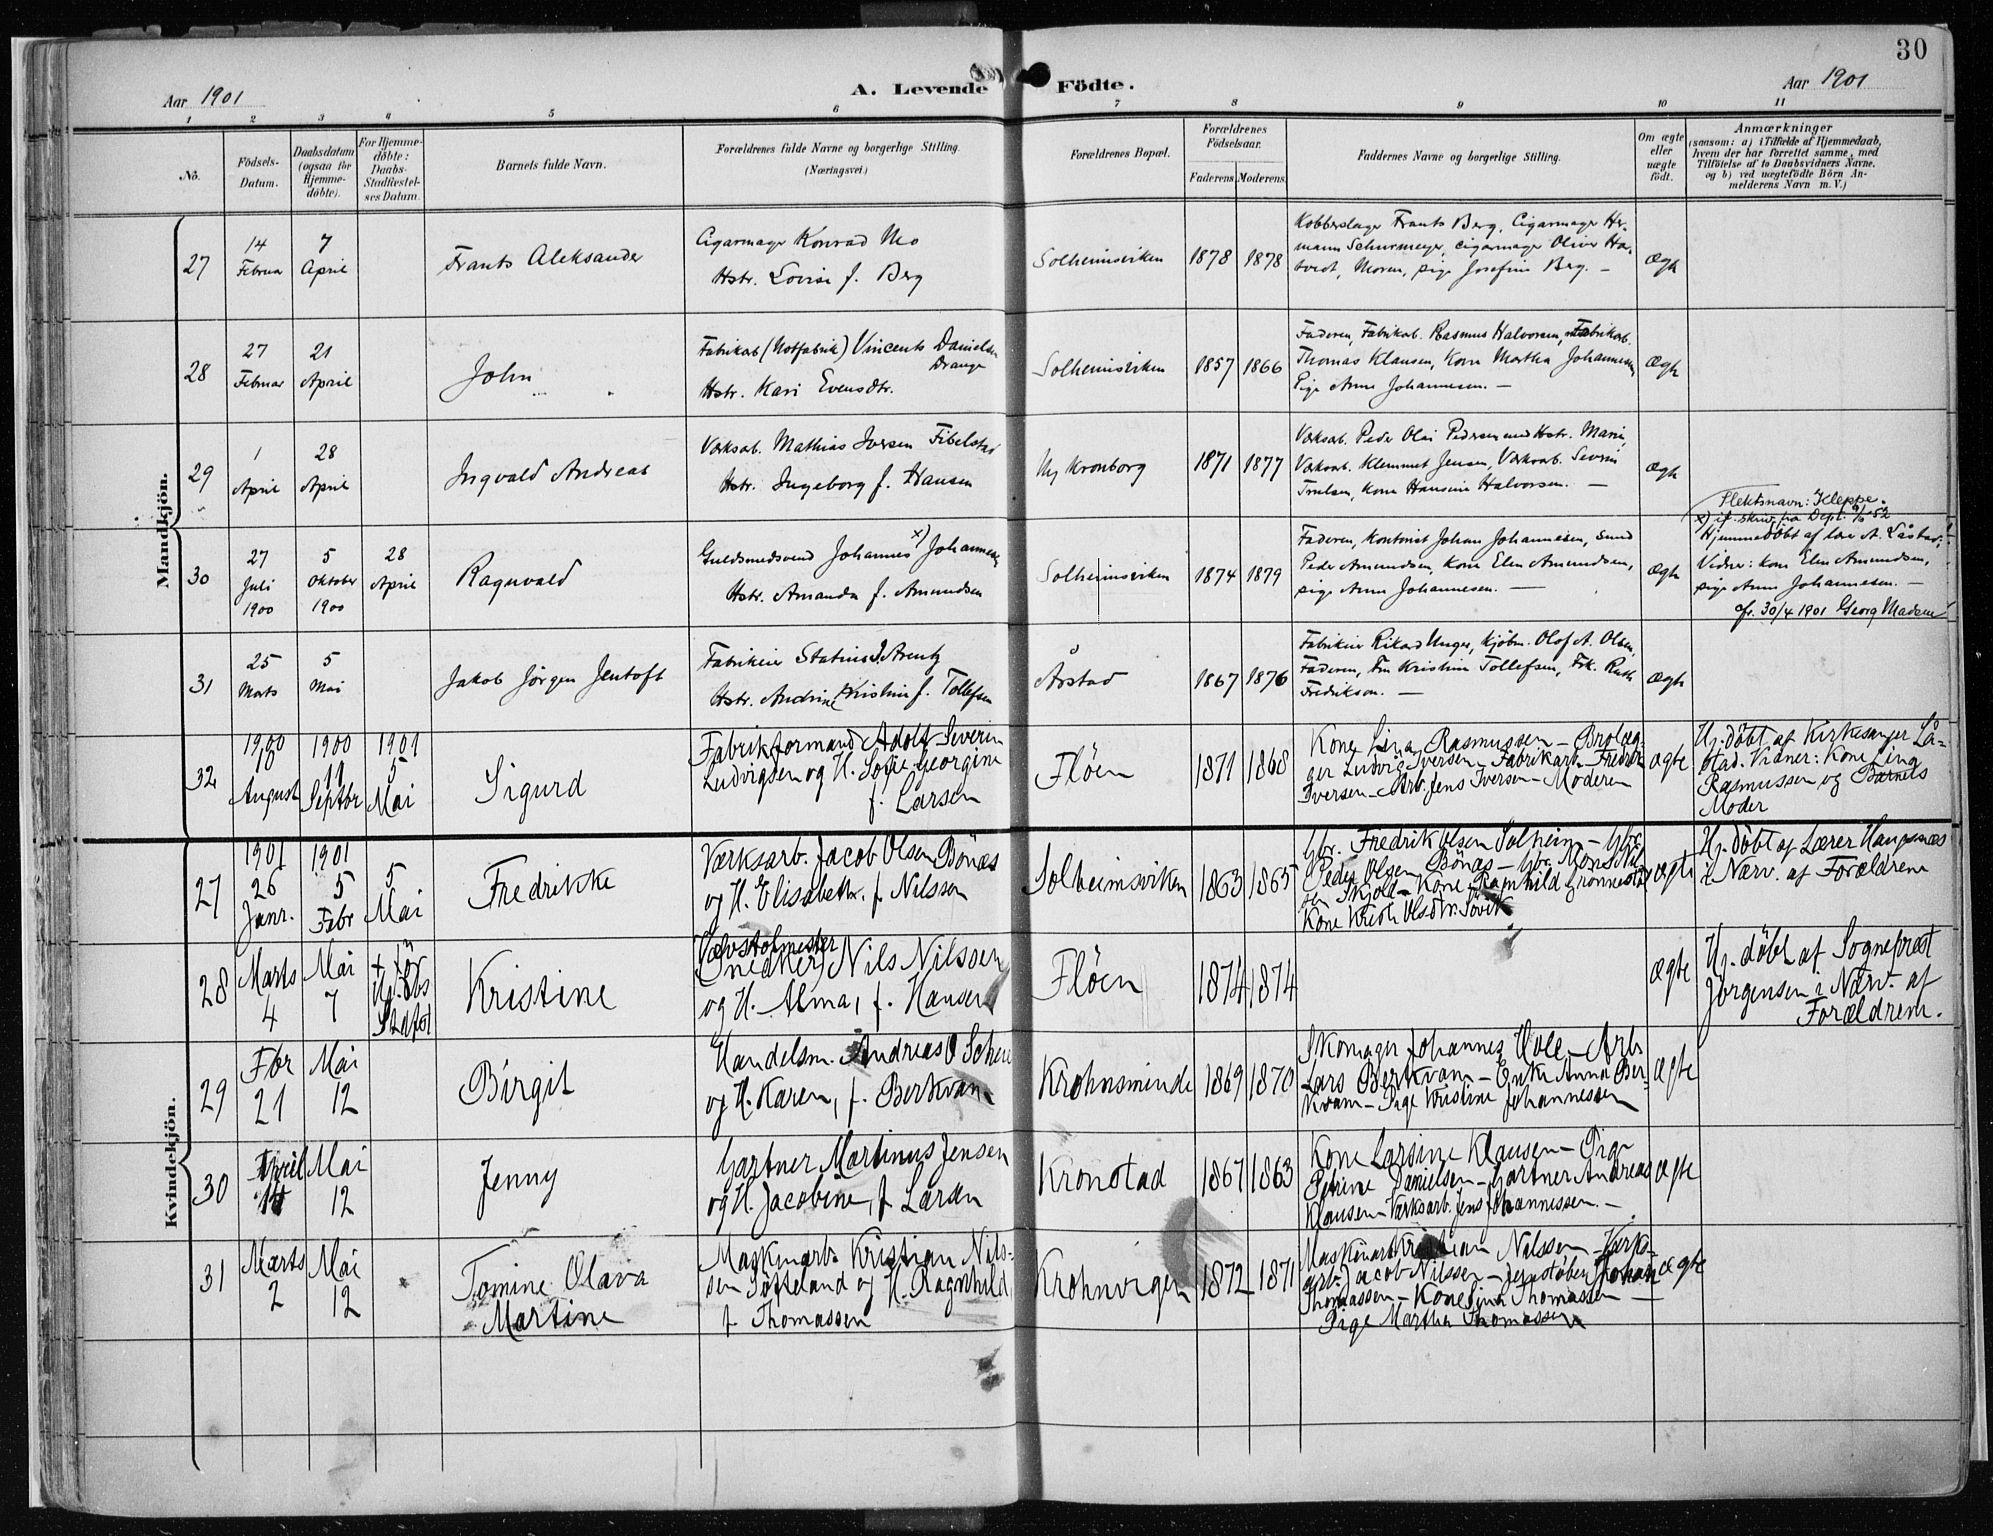 30
Aar 1901
A. Levende Födte.
Aar 1901
1 2 3 4 5 6 7 8 9 10 11
No.
Födsels-
Datum.
Daabsdatum
(ogsaa for
Hjemme-
döbte).
For Hjemme-
döbte:
Daabs-
Stadfæstel-
ses Datum.
Barnets fulde Navn.
Forældrenes fulde Navne og borgerlige Stilling.
(Næringsvei.)
Forældrenes Bopæl.
Forældrenes
Födselsaar.
Faderens Moderens
Faddernes Navne og borgerlige Stilling.
Om ægte
eller
uægte
födt.
Anmærkninger
(saasom: a) i Tilfælde af Hjemmedaab,
hvem der har forrettet samme, med
Tilföielse af to Daabsvidners Navne,
og b) ved uægtefödte Börn An-
melderens Navn m. V.)
Mandkjön.
27
14
Februar
7
April
Frants Aleksander
Cigarmager Konrad Mo
Hstr. Lovise f. Berg
Solheimsviken
1878 1878
Kobberslager Frants Berg, Cigarmager Her-
mann Schurmeyer, cigarmager Oliver Ha-
tvedt, Moren, pige Josefine Berg. -
ægte
28
27
Februar
21
April
John
Fabrikab (Notfabrik) Vincents Danielsen
Drange
Hstr. Kari Evensdtr.
Solheimsviken
1857 1866
Faderen, Fabrikab. Rasmus Halvorsen, Fabrikab.
Thomas Klausen, Kone Martha Johannesen,
Pige Anne Johannesen. -
ægte
29
1
April
28
April
Ingvald Andreas
Værksab. Mathias Iversen Fibelstad
Hstr. Ingeborg f. Hansen
Ny Kronborg
1871 1877
Værksab. Peder Olai Pedersen med Hstr. Marie,
Værksab. Klemmet Jensen, Værksab. Severin
Truelsen, Kone Hansine Halvorsen. -
ægte
30
27
Juli
1900
5
Oktober
1900
28
April
Ragnvald
Guldsmedsvend Johannes x) Johannesen
Hstr. Amanda f. Amundsen
Solheimsviken
1874 1879
Faderen, Kontorist Johan Johannesen, Smed
Peder Amundsen, Kone Elen Amundsen,
pige Anne Johannesen. -
ægte
Slektsnavn: Kleppe.
x) if. skriv fra Dept.
Hjemmedöbt af lær A. Låstad.
Vidner: kone Elen Amundsen,
pige Anne Johannesen. -
cfr. 30/4 1901 Georg Madsen
31
25
Marts
5
Mai
Jakob Jørgen Jentoft
Fabrikeier Statius J. Arentz
Hstr. Andrine Kristine f. Tollefsen
Årstad
1867 1876
Fabrikeier Rikard Unger, Kjöbm. Olof A. Olsen,
Faderen, Fru Kristine Tollefsen, Frk. Ruth
Fredrikson. -
ægte
32
1900
18
August
1900
11
Septbr
1901
5
Mai
Sigurd
Fabrikformand Adolf Severin
Ludvigsen og H. Sofie Georgine
f. Larsen
Fløen
1871 1868
Kone Lina Rasmussen - Brolæg-
ger Ludvig Iversen - Fabrikarb. Fredrik
Iversen - Arb. Jens Iversen - Moderen
ægte
Hj. döbt af Kirkesanger Lå-
stad. Vidner: Kone Lina
Rasmussen og Barnets
Moder
Kvindekjön.
27
1901
26
Janr.
1901
5
Febr
5
Mai
Fredrikke
Værksarb. Jacob Olsen Bönæs
og H. Elisabeth, f. Nilsson
Solheimsviken
1863 1865
Gbr. Fredrik Olsen Solheim - Gbr.
Peder Olsen Bönæs - Gbr. Mons Nil-
sen Skjold - Kone Ragnhild Grönnestad
Kone Kristi Olsdtr. Søvik
ægte
Hj. döbt af Lærer Haugsnæs
i Nærv. af Forældrene
28
Marts
4
Mai
7
+ för
Kristine
Vævstolmester
(Snedker) Nils Nilssen
og H. Alma, f. Hansen
Fløen
1874 1874
ægte
Hj. döbt af Sogneprest
Jörgensen i Nærv. af
Forældrene.
29
Fbr
21
Mai
12
Birgit
Handelsm. Andreas O Scheie
og H. Karen, f. Berkvam
Krohnsminde
1869 1870
Skomager Johannes Hole - Arb.
Lars Berkvam - Enke Anna Ber-
kvam - Pige Kristine Johannessen
ægte
30
April
14
Mai
12
Jenny
Gartner Martinus Jensen
og H. Jacobine, f. Larsen
Kronstad
1867 1863
Kone Larsine Klausen - Pige
Petrine Danielsen - Gartner Andreas
Klausen - Værksarb. Jens Johannessen. -
ægte
31
Marts
2
Mai
12
Tomine Olava
Martine
Maskinarb. Kristian Nils-
sen Softeland og H. Ragnhild,
f. Thomassen
Krohnvigen
1872 1871
Maskinarb. Kristian Nilssen - Værks-
arb. Jacob Nilssen - Jernstøber Johan
Thomassen - Kone Sina Thomassen -
Pige Martha Thomassen
ægte